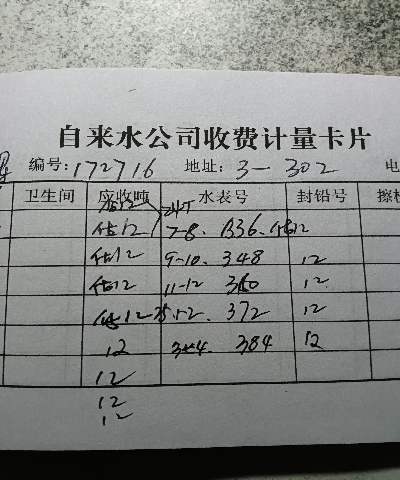 自来水公司收费计量卡片
编号:172716 地址:3-302 电
卫生间 应收吨 水表号 封铅号 擦
12 7-8. 336. 12
估12 9-10. 348 12
估12 11-12 360 12
12 1-2. 372 12
12 3-4. 384 12
12
12
12